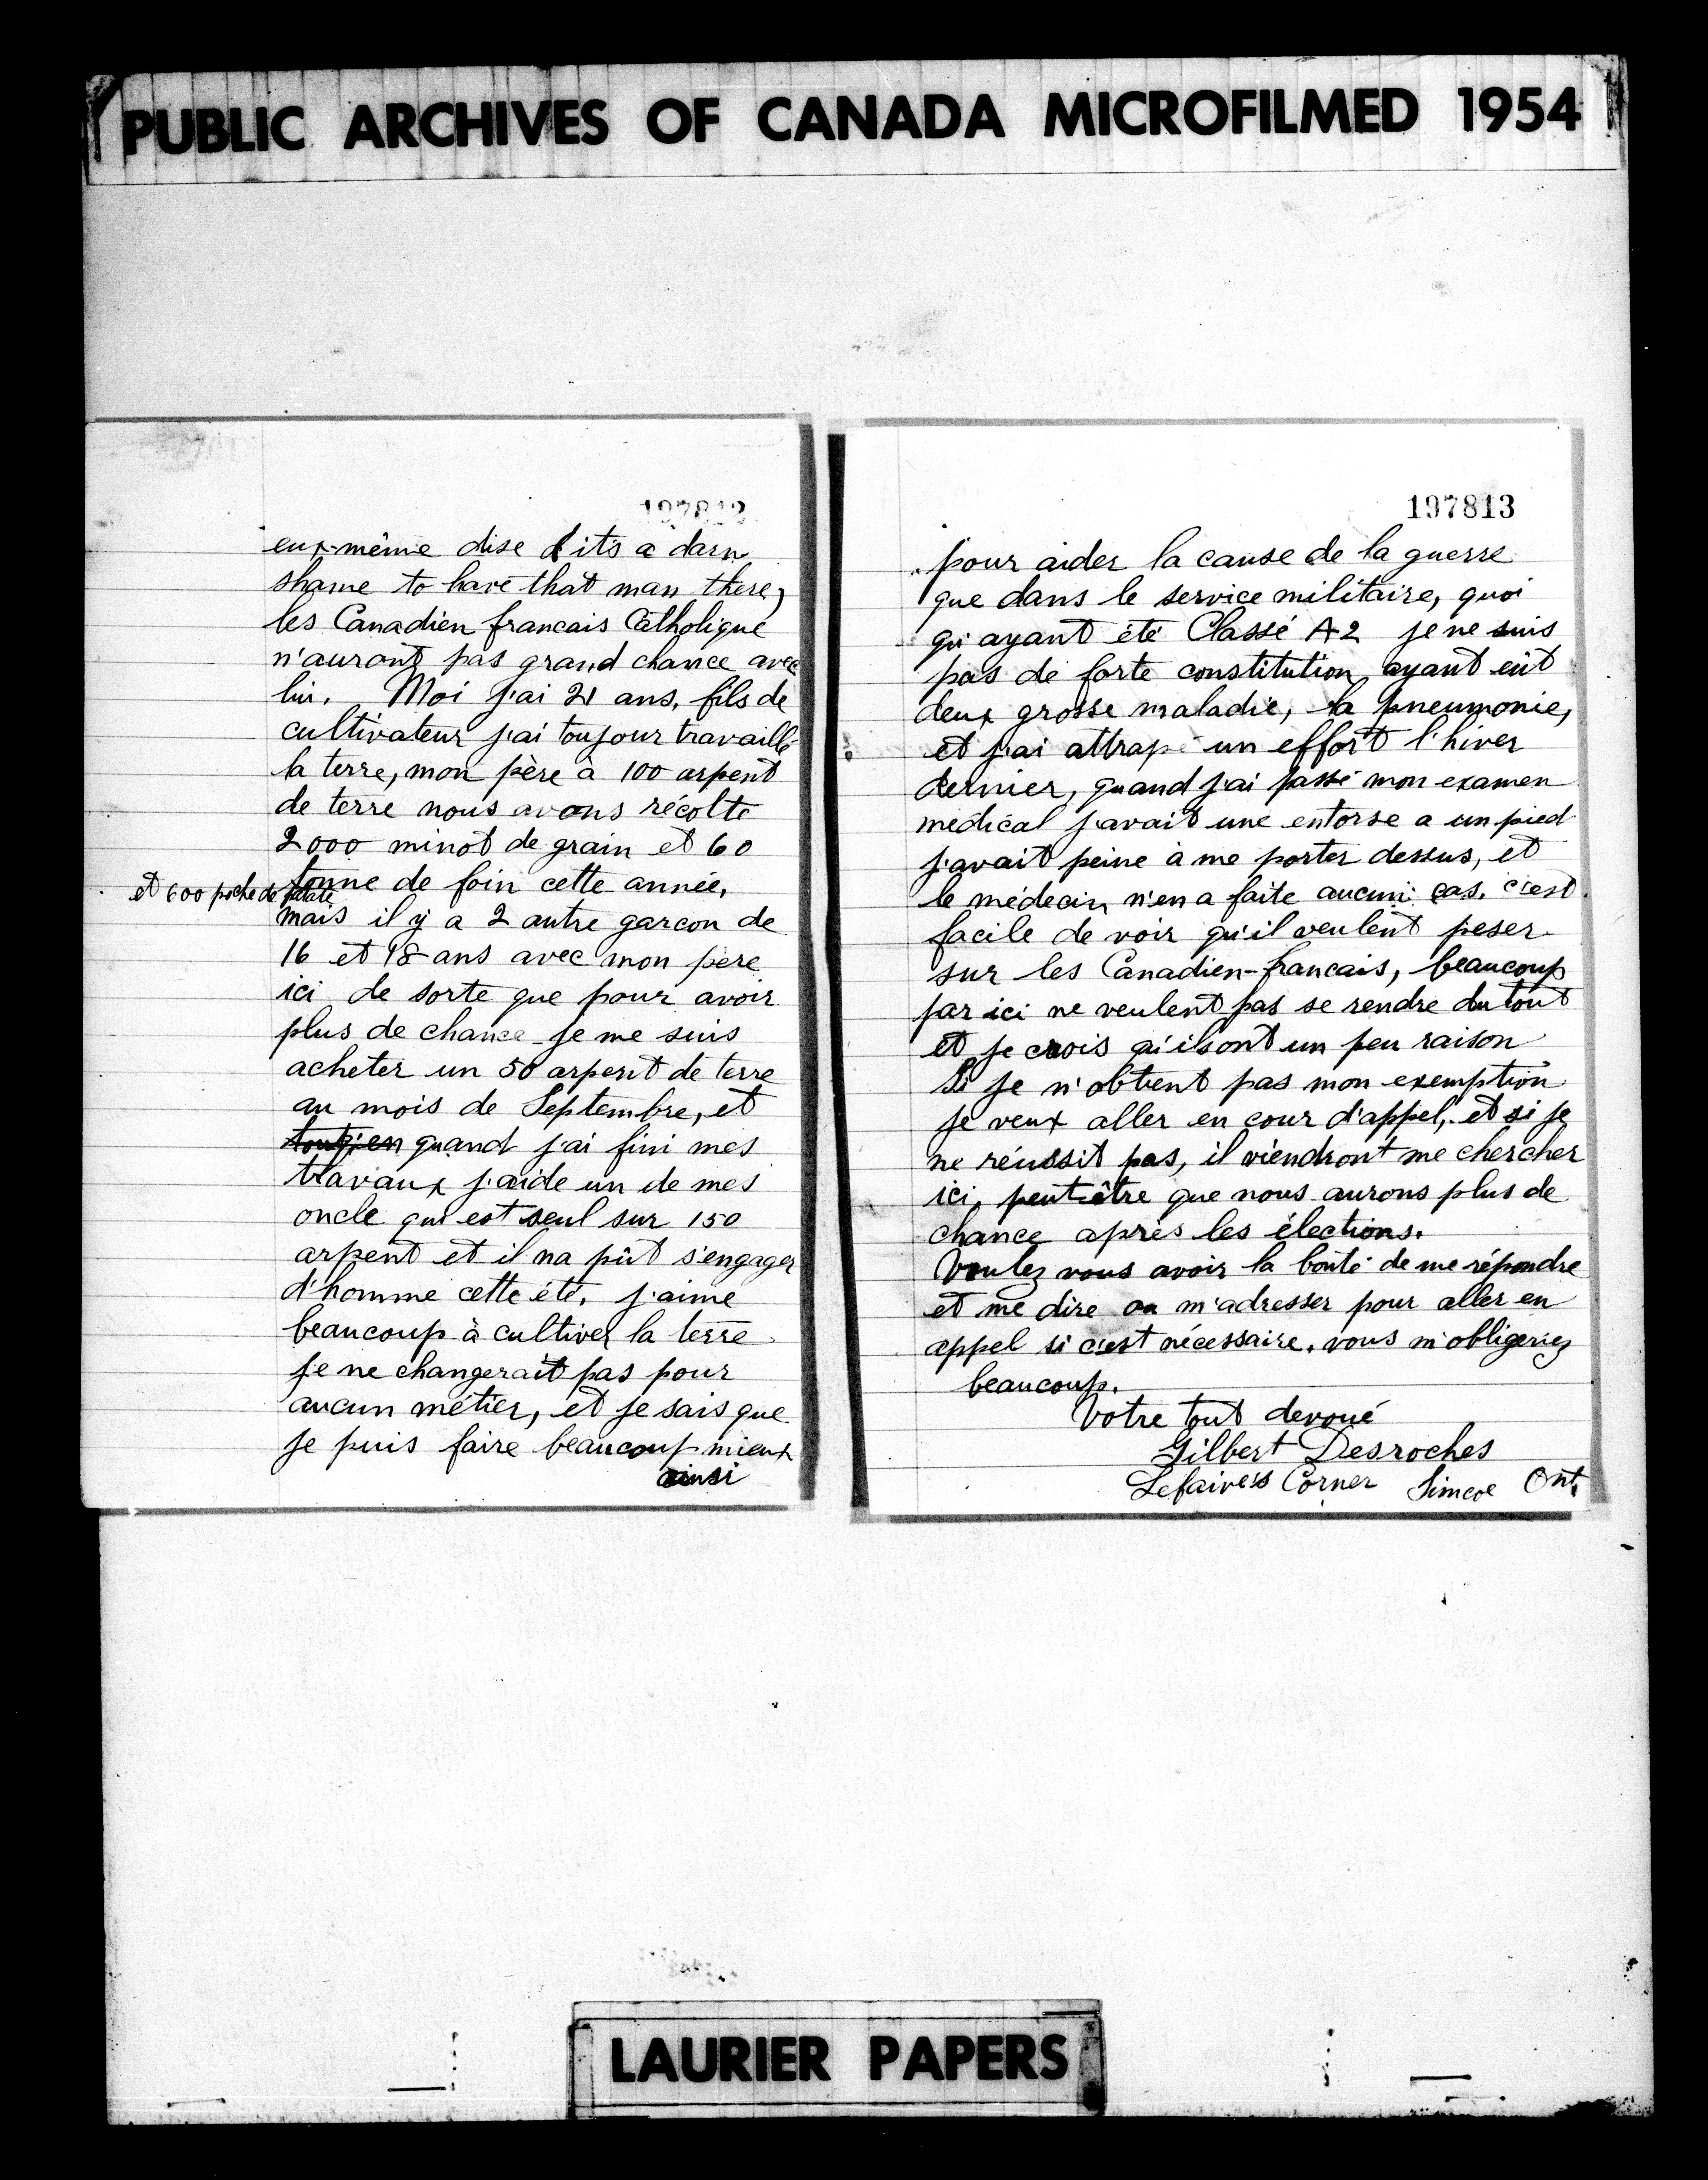 PUBLIC ARCHIVES OF CANADA MICROFILMED 1954
197812
eux-même dise its a darn
shame to have that man there,
les Canadien francais Catholique
n'auront pas grand chance avec
lui. Moi j'ai 21 ans, fils de
cultivateur j'ai toujour travaillé
la terre, mon père à 100 arpent
de terre nous avons récolté
2000 minot de grain et 60
tonne de foin cette année,
et 600 poche de patate
mais il y a 2 autre garcon de
16 et 18 ans avec mon père
ici de sorte que pour avoir
plus de chance je me suis
acheter un 50 arpent de terre
au mois de Septembre, et
quand j'ai fini mes
travaux j'aide un de mes
oncle qui est seul sur 150
arpent et il na pût s'engager
d'homme cette été, j'aime
beaucoup à cultiver la terre
je ne changerait pas pour
aucun métier, et je sais que
je puis faire beaucoup mieux
ainsi
197813
pour aider la cause de la guerre
que dans le service militaire, quoi
qu'ayant été Classé A2 je ne suis
pas de forte constitution ayant eût
deux grosse maladie, la pneumonie,
et j'ai attrapé un effort l'hiver
dernier, quand j'ai passé mon examen
médical j'avait une entorse a un pied
j'avait peine à me porter dessus, et
le médecin n'en a faite aucun cas. c'est
facile de voir qu'il veulent peser
sur les Canadien-francais, beaucoup
par ici ne veulent pas se rendre du tout
et je crois qu'ils ont un peu raison
Si je n'obtient pas mon exemption
je veux aller en cour d'appel, et si je
ne réussit pas, il viendront me chercher
ici, peut-être que nous aurons plus de
chance après les élections.
Voulez vous avoir la bonté de me répondre
et me dire ou m'adresser pour aller en
appel si c'est nécessaire, vous m'obligeriez
beaucoup.
Votre tout devoué
Gilbert Desroches
Lefaive's Corner Simcoe Ont.
LAURIER PAPERS